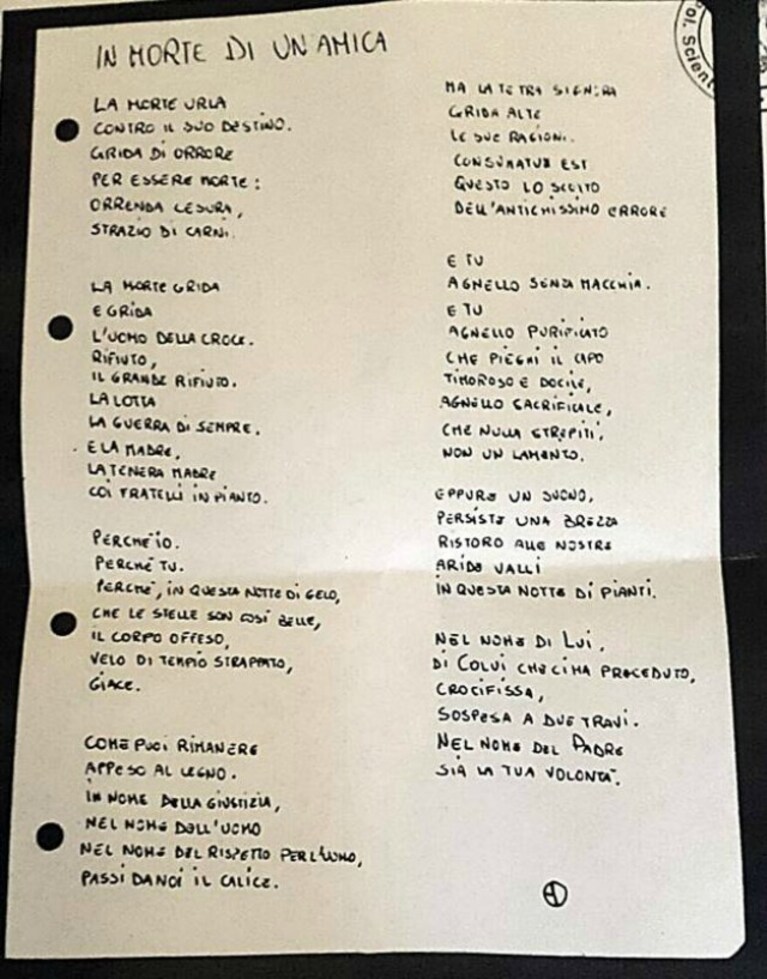 IN MORTE DI UN'AMICA
LA MORTE URLA
CONTRO IL SUO DESTINO.
GRIDA DI ORRORE
PER ESSERE MORTE:
ORRENDA CESURA,
STRAZIO DI CARNI.
LA MORTE GRIDA
E GRIDA
L'UOMO DELLA CROCE.
RIFIUTO,
IL GRANDE RIFIUTO.
LA LOTTA
LA GUERRA DI SEMPRE.
E LA MADRE,
LA TENERA MADRE
COI FRATELLI IN PIANTO.
PERCHÉ IO.
PERCHÉ TU.
PERCHÉ, IN QUESTA NOTTE DI GELO,
CHE LE STELLE SON COSÍ BELLE,
IL CORPO OFFESO,
VELO DI TEMPIO STRAPPATO,
GIACE.
COME PUOI RIMANERE
APPESO AL LEGNO.
IN NOME DELLA GIUSTIZIA,
NEL NOME DELL'UOMO
NEL NOME DEL RISPETTO PER L'UOMO,
PASSI DA NOI IL CALICE.
MA LA TETRA SIGNORA
GRIDA ALTE
LE SUE RAGIONI.
CONSUMATUM EST
QUESTO LO SCOTTO
DELL'ANTICHISSIMO ERRORE
E TU
AGNELLO SENZA MACCHIA.
E TU
AGNELLO PURIFICATO
CHE PIEGHI IL CAPO
TIMOROSO E DOCILE,
AGNELLO SACRIFICALE,
CHE NULLA STREPITI,
NON UN LAMENTO.
EPPURE UN SUONO,
PERSISTE UNA BREZZA
RISTORO ALLE NOSTRE
ARIDE VALLI
IN QUESTA NOTTE DI PIANTI.
NEL NOME DI LUI,
DI COLUI CHE CI HA PRECEDUTO,
CROCIFISSA,
SOSPESA A DUE TRAVI.
NEL NOME DEL PADRE
SIA LA TUA VOLONTÀ.